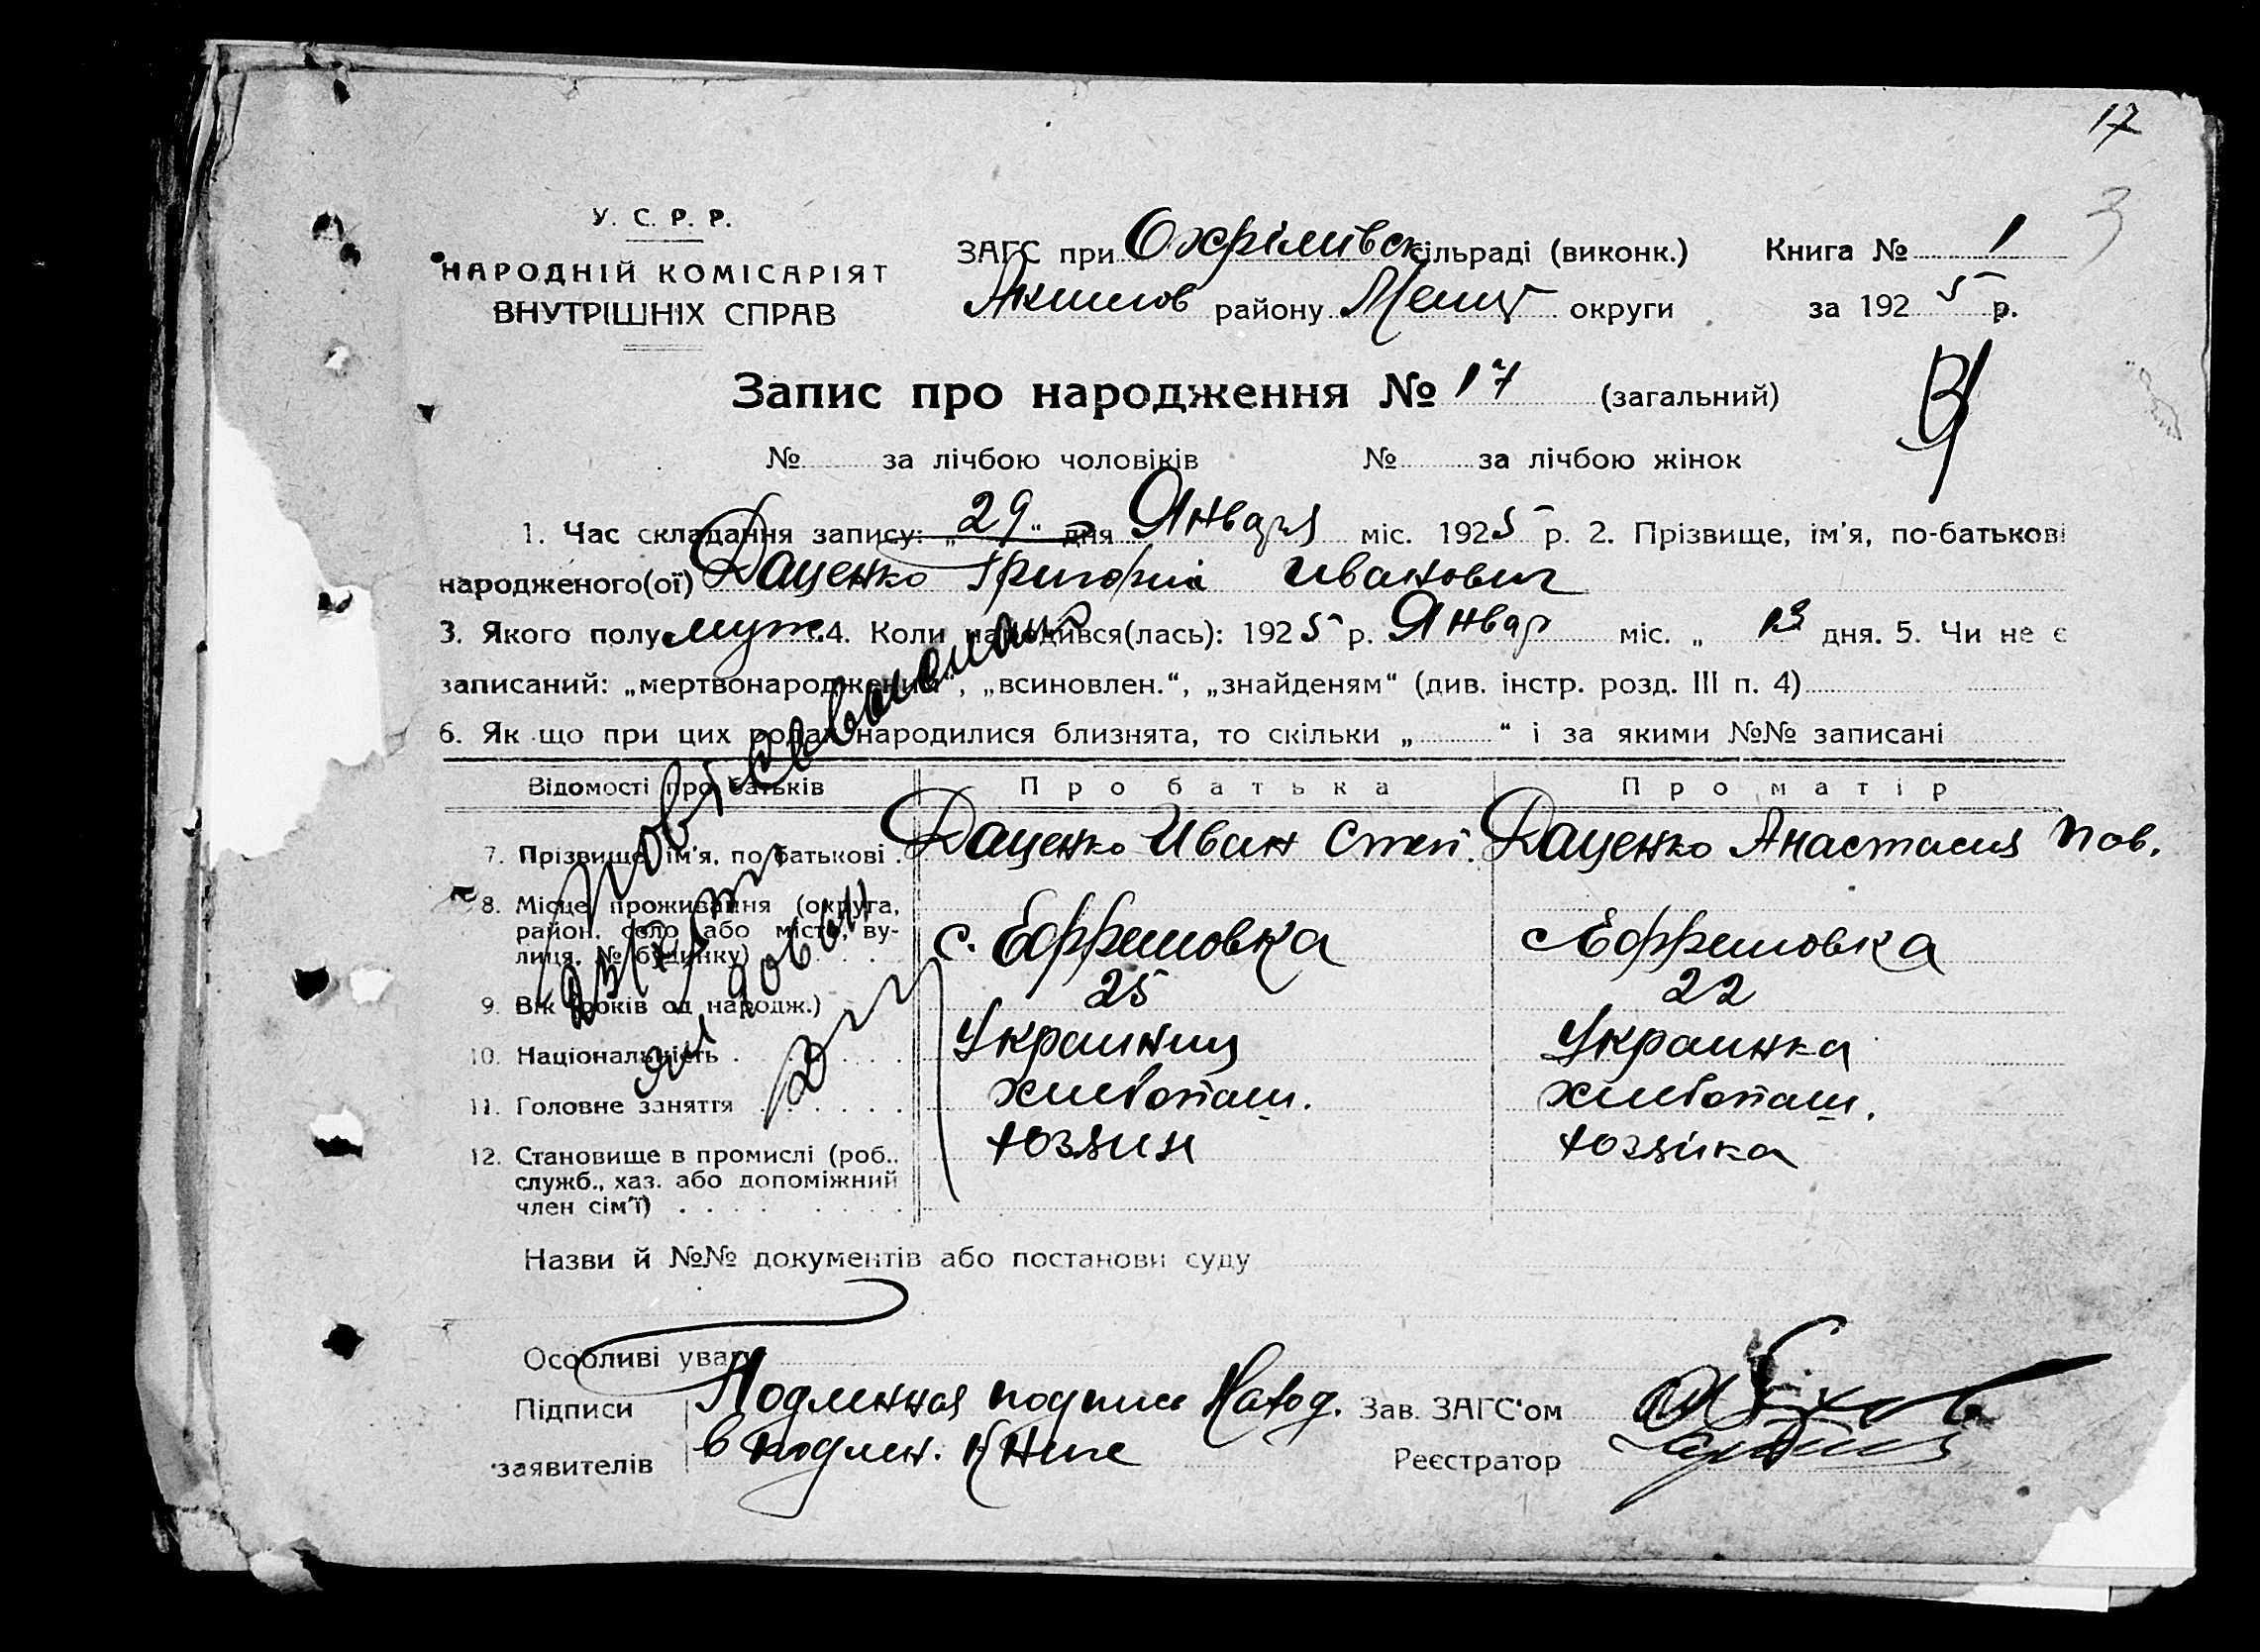 17
3
У. С. Р. Р.
НАРОДНІЙ КОМІСАРІЯТ
ВНУТРІШНІХ СПРАВ
ЗАГС при Охрімивск сільраді (виконк.) Книга № 1
Акимов району Мелит округи за 1925 р.
Запис про народження № 17 (загальний)
№ за лічбою чоловіків № за лічбою жінок
1. Час складання запису: „29“ дня Января міс. 1925 р. 2. Прізвище, ім'я, по-батькові
народженого(ої) Даценко Григорий Иванович
3. Якого полу муж. 4. Коли народився(лась): 1925 р. Январ міс. „ 13 дня. 5. Чи не є
записаний: „мертвонароджений“, „всиновлен.“, „знайденям“ (див. інстр. розд. III п. 4)
6. Як що при цих родах народилися близнята, то скільки „ “ і за якими №№ записані
Відомості про батьків Про батька Про матір
7. Прізвище, ім'я, по батькові Даценко Иван Степ. Даценко Анастасия Пав.
8. Місце проживання (округа,
район, село або місто, ву-
лиця, № будинку) с. Ефремовка с Ефремовка
9. Вік (років од народж.) 25 22
10. Національність Украинец Украинка
11. Головне заняття хлебопаш. хлебопаш.
12. Становище в промислі (роб.,
служб., хаз. або допоміжний
член сім'ї)
хозяин хозяйка
Назви й №№ документів або постанови суду
Особливі уваги
Підписи Подлинная подписи наход. Зав. ЗАГС'ом
заявителів в подлин. книге Реєстратор